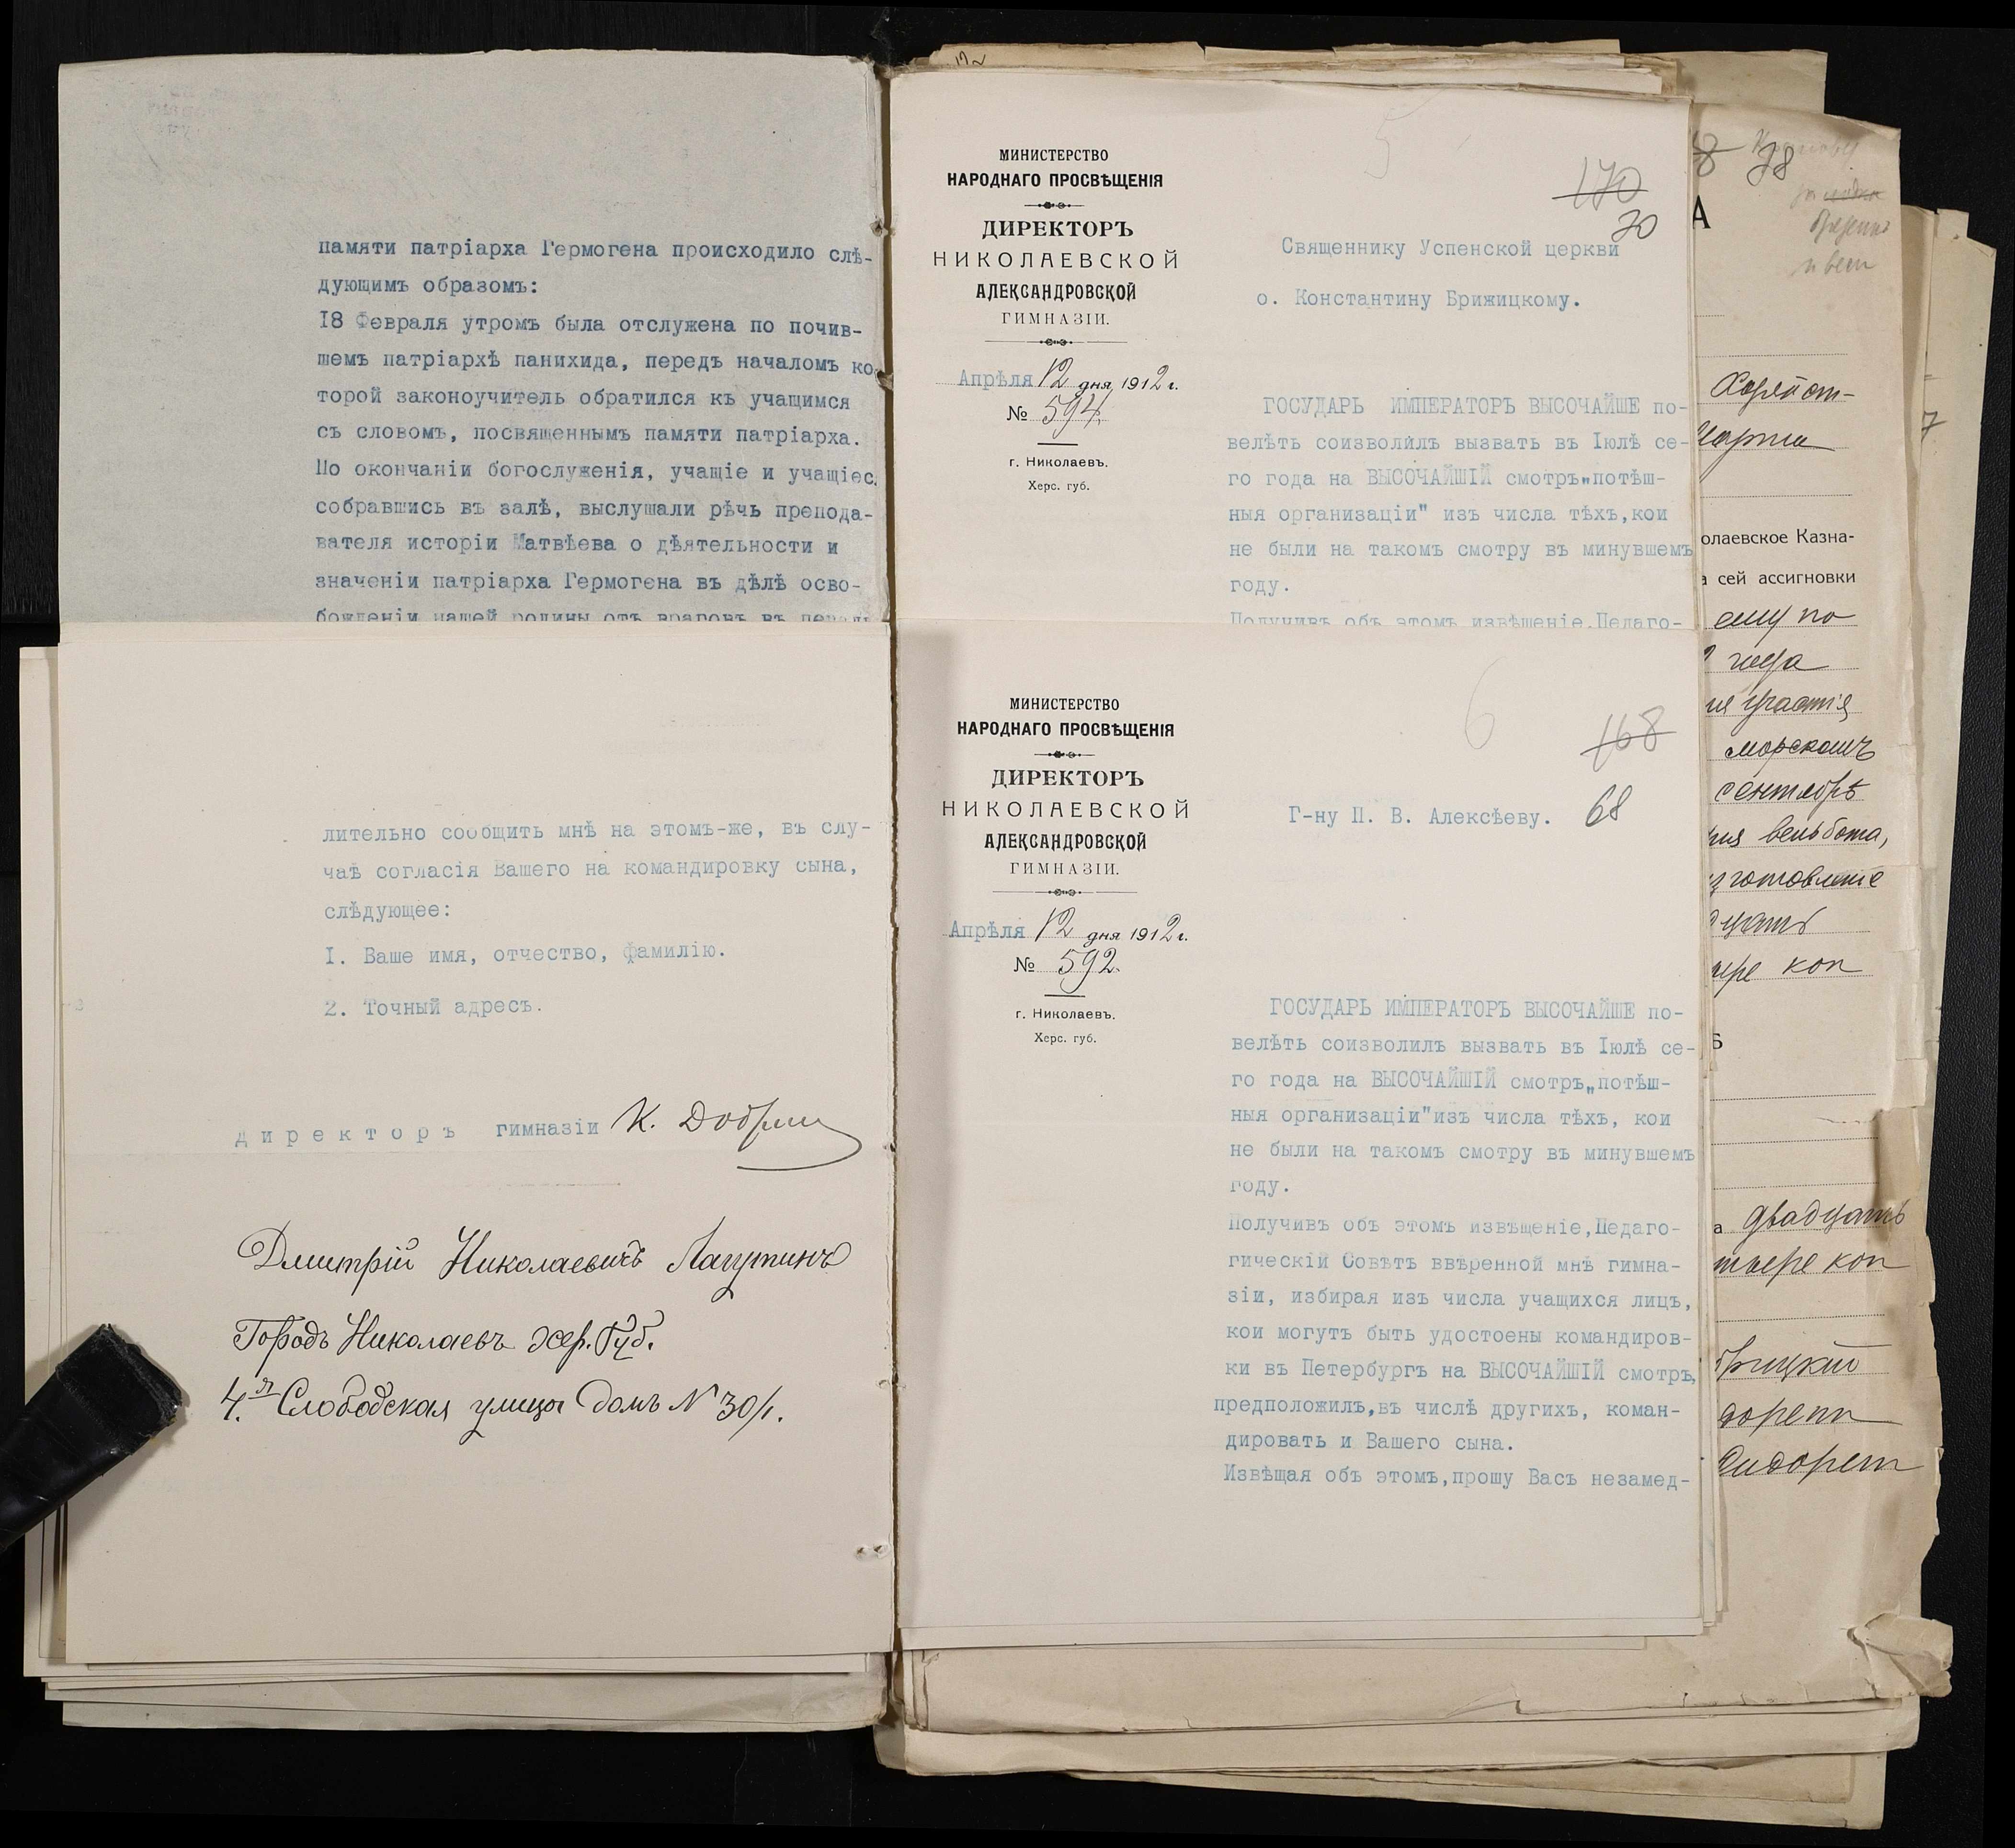 памяти патріарха Гермогена происходило слѣ-
дующимъ образомъ:
18 Февраля утромъ была отслужена по почив-
шемъ патріархѣ панихида, передъ началомъ ко
торой законоучитель обратился къ учащимся
съ словомъ, посвященнымъ памяти патріарха.
По окончаніи богослуженія, учащіе и учащіес
собравшись въ залѣ, выслушали рѣчь препода-
вателя исторіи Матвѣева о дѣятельности и
значеніи патріарха Гермогена въ дѣлѣ осво-
божденіи нашей родины отъ враговъ въ
лительно сообщить мнѣ на этомъ-же, въ слу-
чаѣ согласія Вашего на командировку сына,
слѣдующее:
I. Ваше имя, отчество, фамилію.
2. Точный адресъ.
директоръ гимназіи
Дмитрій Николаевичъ Лагутинъ
Городъ Николаевъ Хер. Губ.
4.я Слободская улица домъ № 30/1.
МИНИСТЕРСТВО
НАРОДНАГО ПРОСВѢЩЕНІЯ
ДИРЕКТОРЪ
НИКОЛАЕВСКОЙ
АЛЕКСАНДРОВСКОЙ
ГИМНАЗІИ.
Апрѣля 12 дня 1912 г.
№ 594.
г. Николаевъ.
Херс. губ.
5
170
70
Священнику Успенской церкви
о. Константину Брижицкому.
ГОСУДАРЬ ИМПЕРАТОРЪ ВЫСОЧАЙШЕ по-
велѣть соизволилъ вызвать въ Іюлѣ се-
го года на ВЫСОЧАЙШІЙ смотръ„потѣш-
ныя организаціи" изъ числа тѣхъ,кои
не были на такомъ смотру въ минувшемъ
году.
Получивъ объ этомъ извѣщеніе,Педаго-
МИНИСТЕРСТВО
НАРОДНАГО ПРОСВѢЩЕНІЯ
ДИРЕКТОРЪ
НИКОЛАЕВСКОЙ
АЛЕКСАНДРОВСКОЙ
ГИМНАЗІИ.
Апрѣля 12 дня 1912 г.
№ 592.
г. Николаевъ.
Херс. губ.
6
168
68
Г-ну П. В. Алексѣеву.
ГОСУДАРЬ ИМПЕРАТОРЪ ВЫСОЧАЙШЕ по-
велѣть соизволилъ вызвать въ Іюлѣ се-
го года на ВЫСОЧАЙШІЙ смотръ„потѣш-
ныя организаціи"изъ числа тѣхъ, кои
не были на такомъ смотру въ минувшемъ
году.
Получивъ объ этомъ извѣщеніе,Педаго-
гическій Совѣтъ ввѣренной мнѣ гимна-
зіи, избирая изъ числа учащихся лицъ,
кои могутъ быть удостоены командиров-
ки въ Петербургъ на ВЫСОЧАЙШІЙ смотръ,
предположилъ,въ числѣ другихъ, коман-
дировать и Вашего сына.
Извѣщая объ этомъ,прошу Васъ незамед-
78
А
Марта
олаевское Казна-
а сей ассигновки
ему по
года
участія
морскомъ
сентябрѣ
вельбота,
изготовленіе
коп
Б
а двадцать
коп